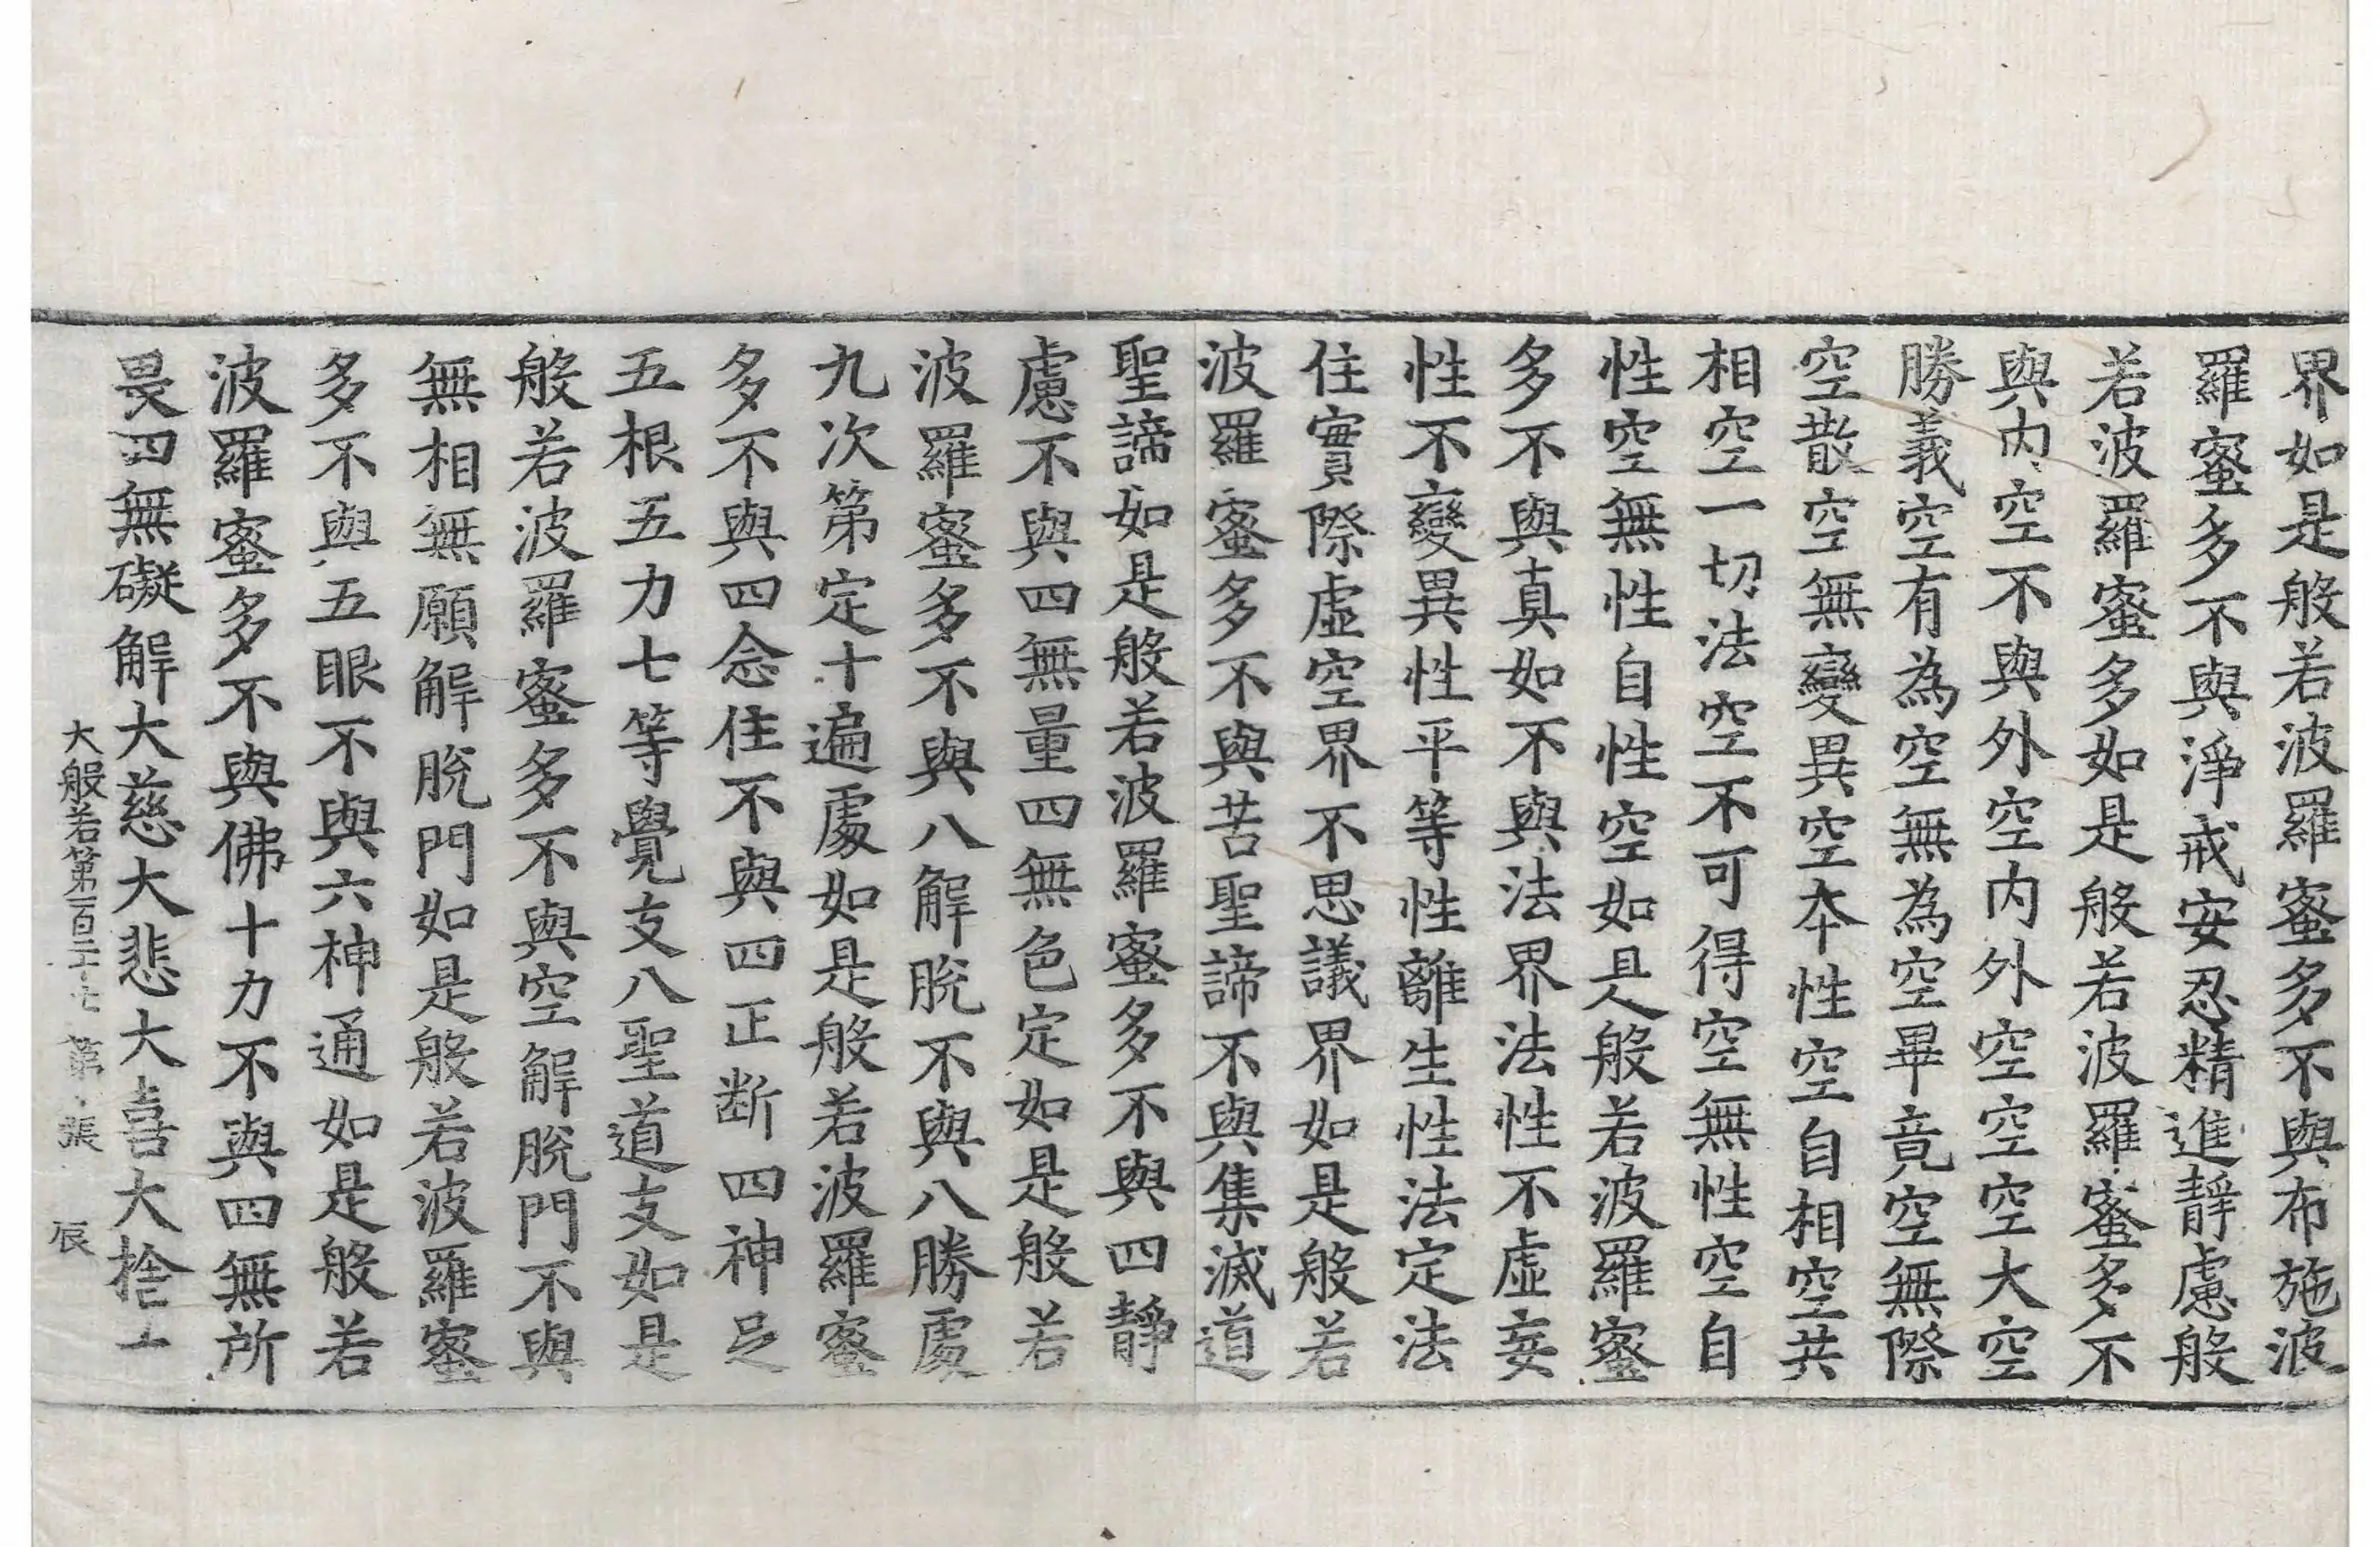 界如是般若波羅蜜多不與布施波
羅蜜多不與淨戒安忍精進靜慮般
若波羅蜜多如是般若波羅蜜多不
與内空不與外空内外空空空大空
勝義空有為空無為空畢竟空無際
空散空無變異空本性空自相空共
相空一切法空不可得空無性空自
性空無性自性空如是般若波羅蜜
多不與真如不與法界法性不虛妄
性不變異性平等性離生性法定法
住實際虛空界不思議界如是般若
波羅蜜多不與苦聖諦不與集滅道
聖諦如是般若波羅蜜多不與四靜
慮不與四無量四無色定如是般若
波羅蜜多不與八解脫不與八勝處
九次第定十遍處如是般若波羅蜜
多不與四念住不與四正断四神足
五根五力七等覺支八聖道支如是
般若波羅蜜多不與空解脫門不與
無相無願解脫門如是般若波羅蜜
多不與五眼不與六神通如是般若
波羅蜜多不與佛十力不與四無所
畏四無礙解大慈大悲大喜大捨十
大般若第一百二十七 第 張 辰